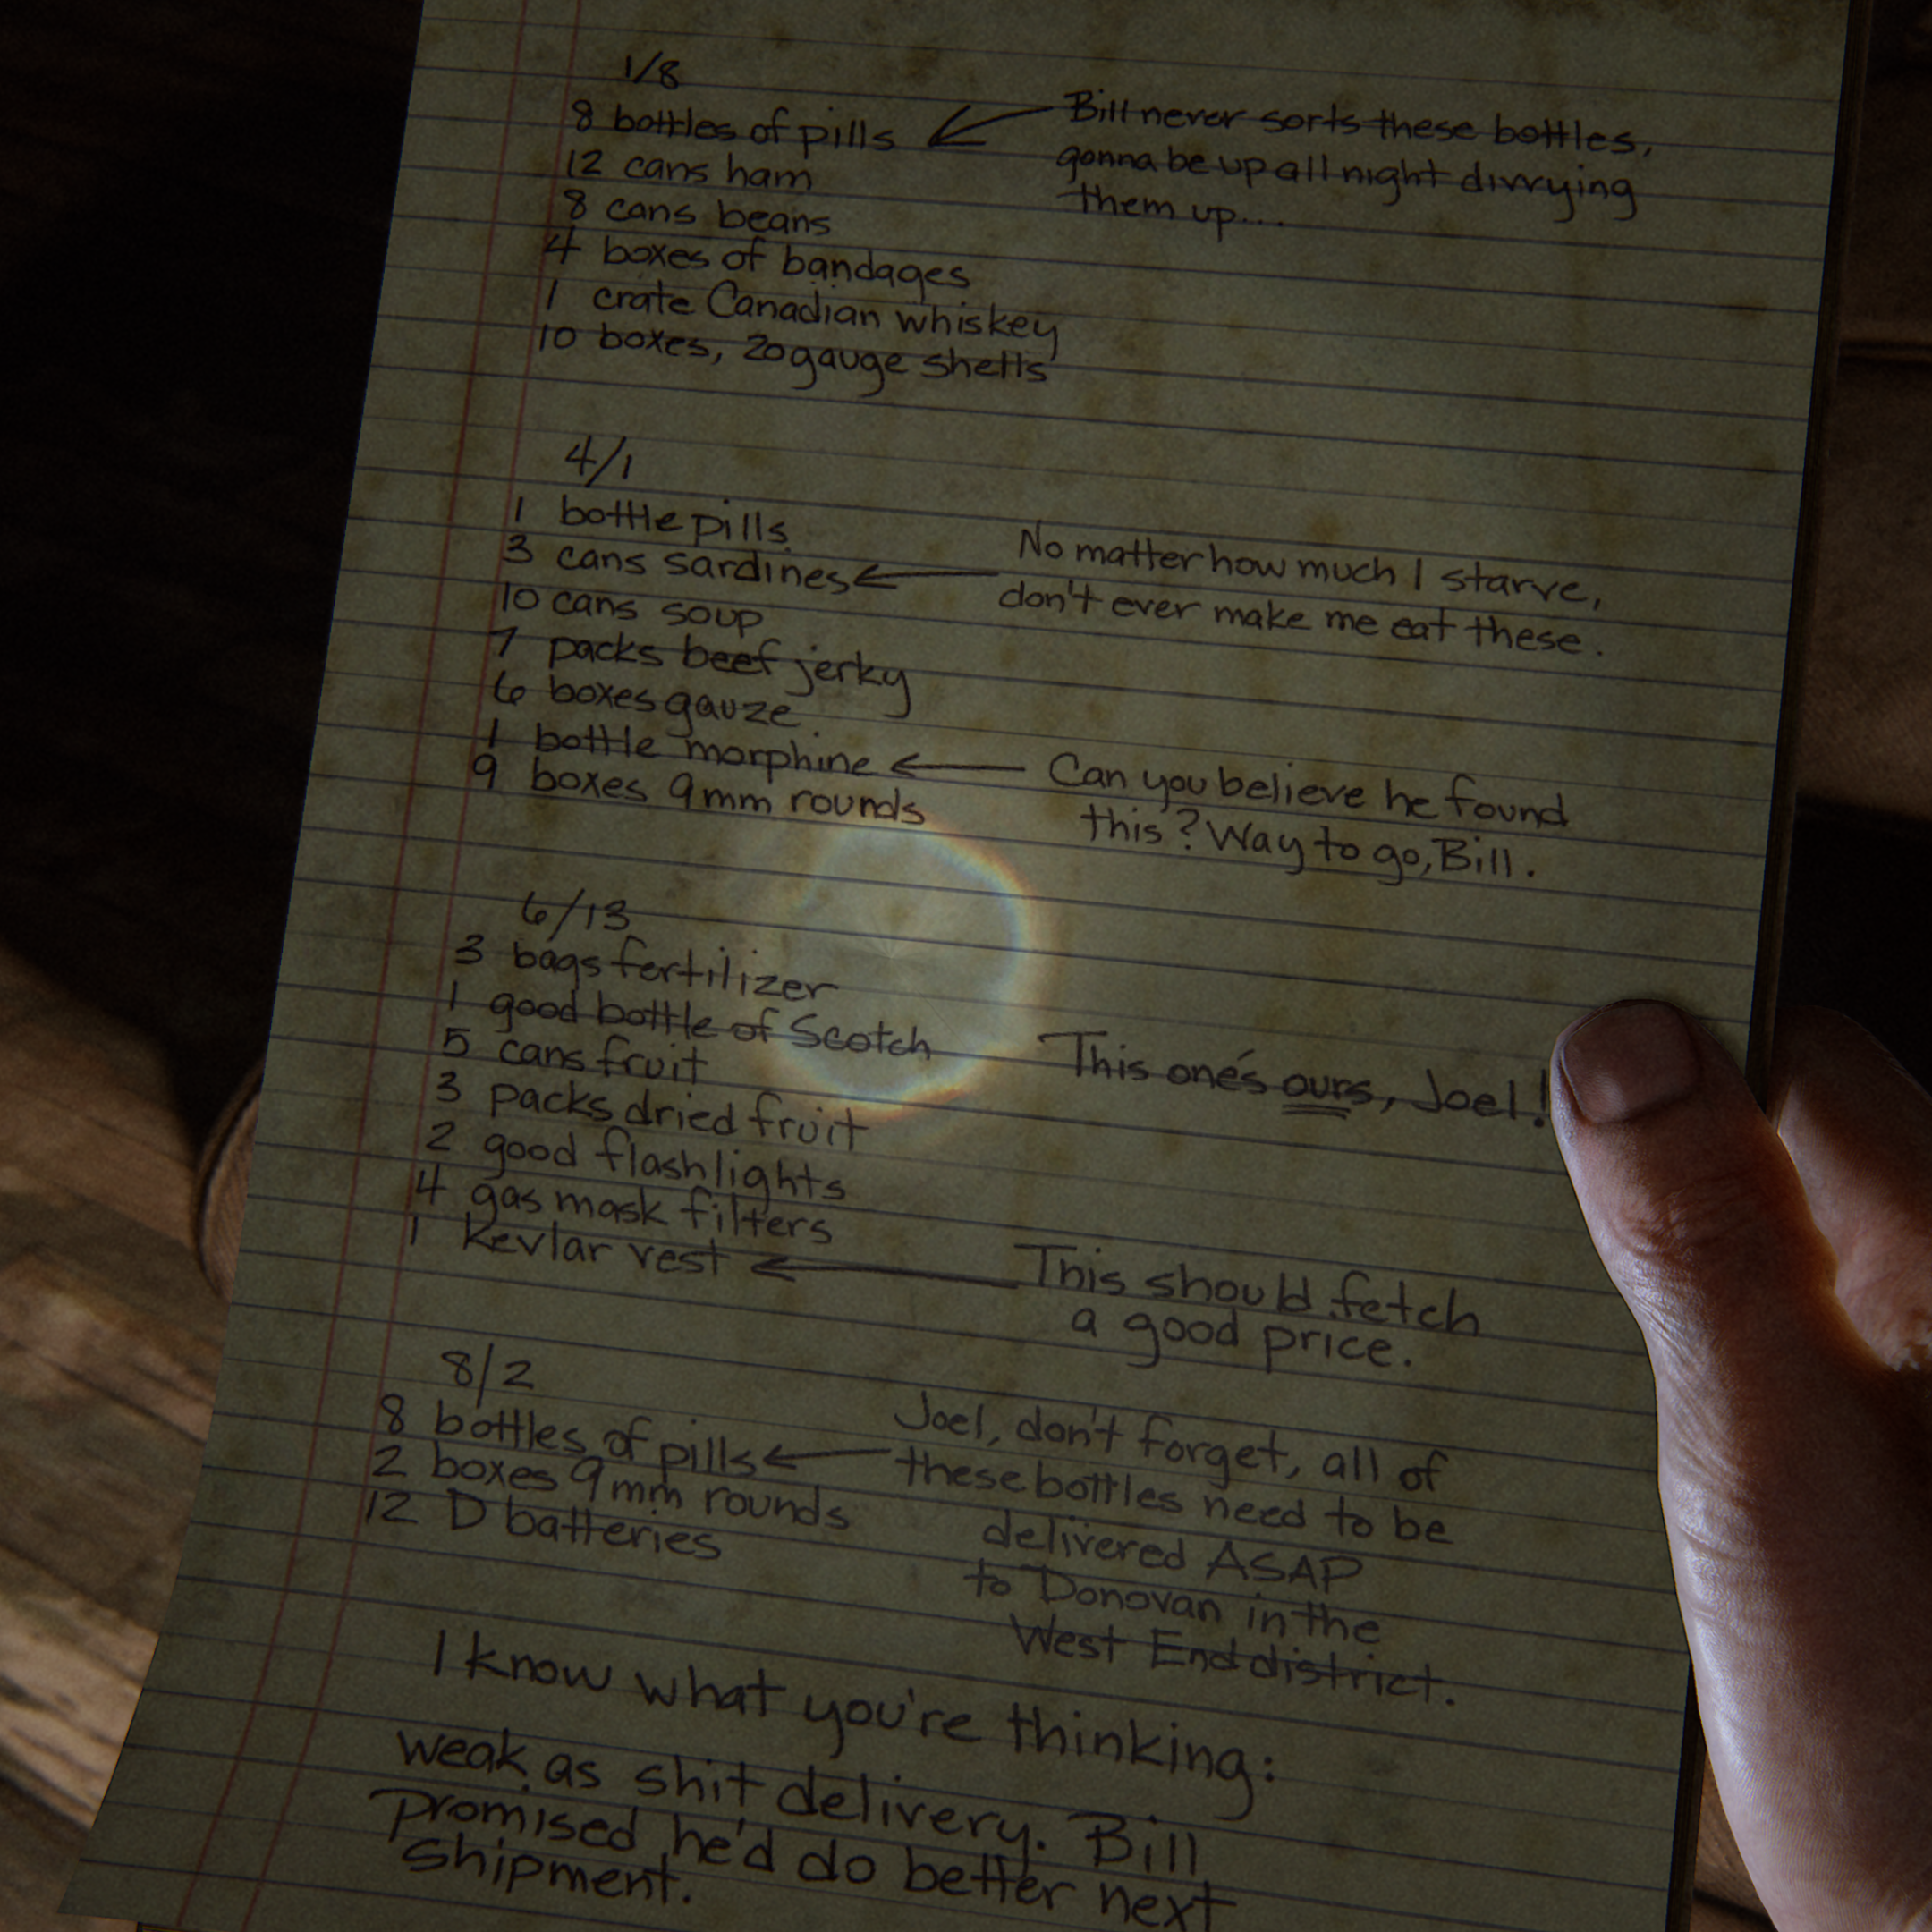 1/8
8 bottles of pills
12 cans ham
8 cans beans
4 boxes of bandages
1 crate Canadian whiskey
10 boxes, 20 gauge shells
Bill never sorts these bottles,
gonna be up all night divvying
them up....
4/1
1 bottle pills
3 cans sardines
10 cans soup
7 packs beef jerky
6 boxes gauze
1 bottle morphine
9 boxes 9mm rounds
No matter how much I starve,
don't ever make me eat these.
Can you believe he found
this? Way to go, Bill.
6/13
3 bags fertilizer
1 good bottle of Scotch
5 cans fruit
3 packs dried fruit
2 good flashlights
4 gas mask filters
1 Kevlar vest
This one's ours, Joel!
This should fetch
a good price.
8/2
8 bottles of pills
2 boxes 9mm rounds
12 D batteries
Joel, don't forget, all of
these bottles need to be
delivered ASAP
to Donovan in the
West End district.
I know what you're thinking:
weak as shit delivery. Bill
promised he'd do better next
shipment.